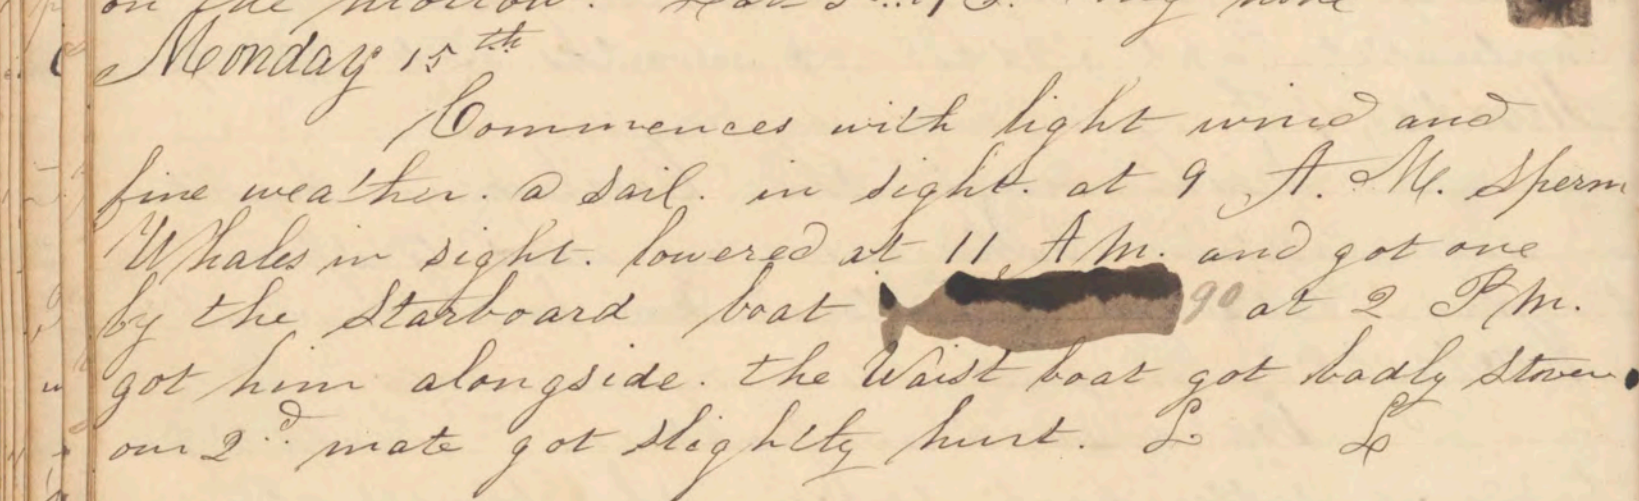 on the morrow.
Monday 15th
Commences with light wind and
fine weather. a sail. in sight. at 9 A. M. Sperm
Whales in sight. lowered at 11 A M. and got one
by the Starboard boat 90 at 2 P M.
got him alongside. the Waist boat got badly stoven
our 2d mate got slightly hurt. L L